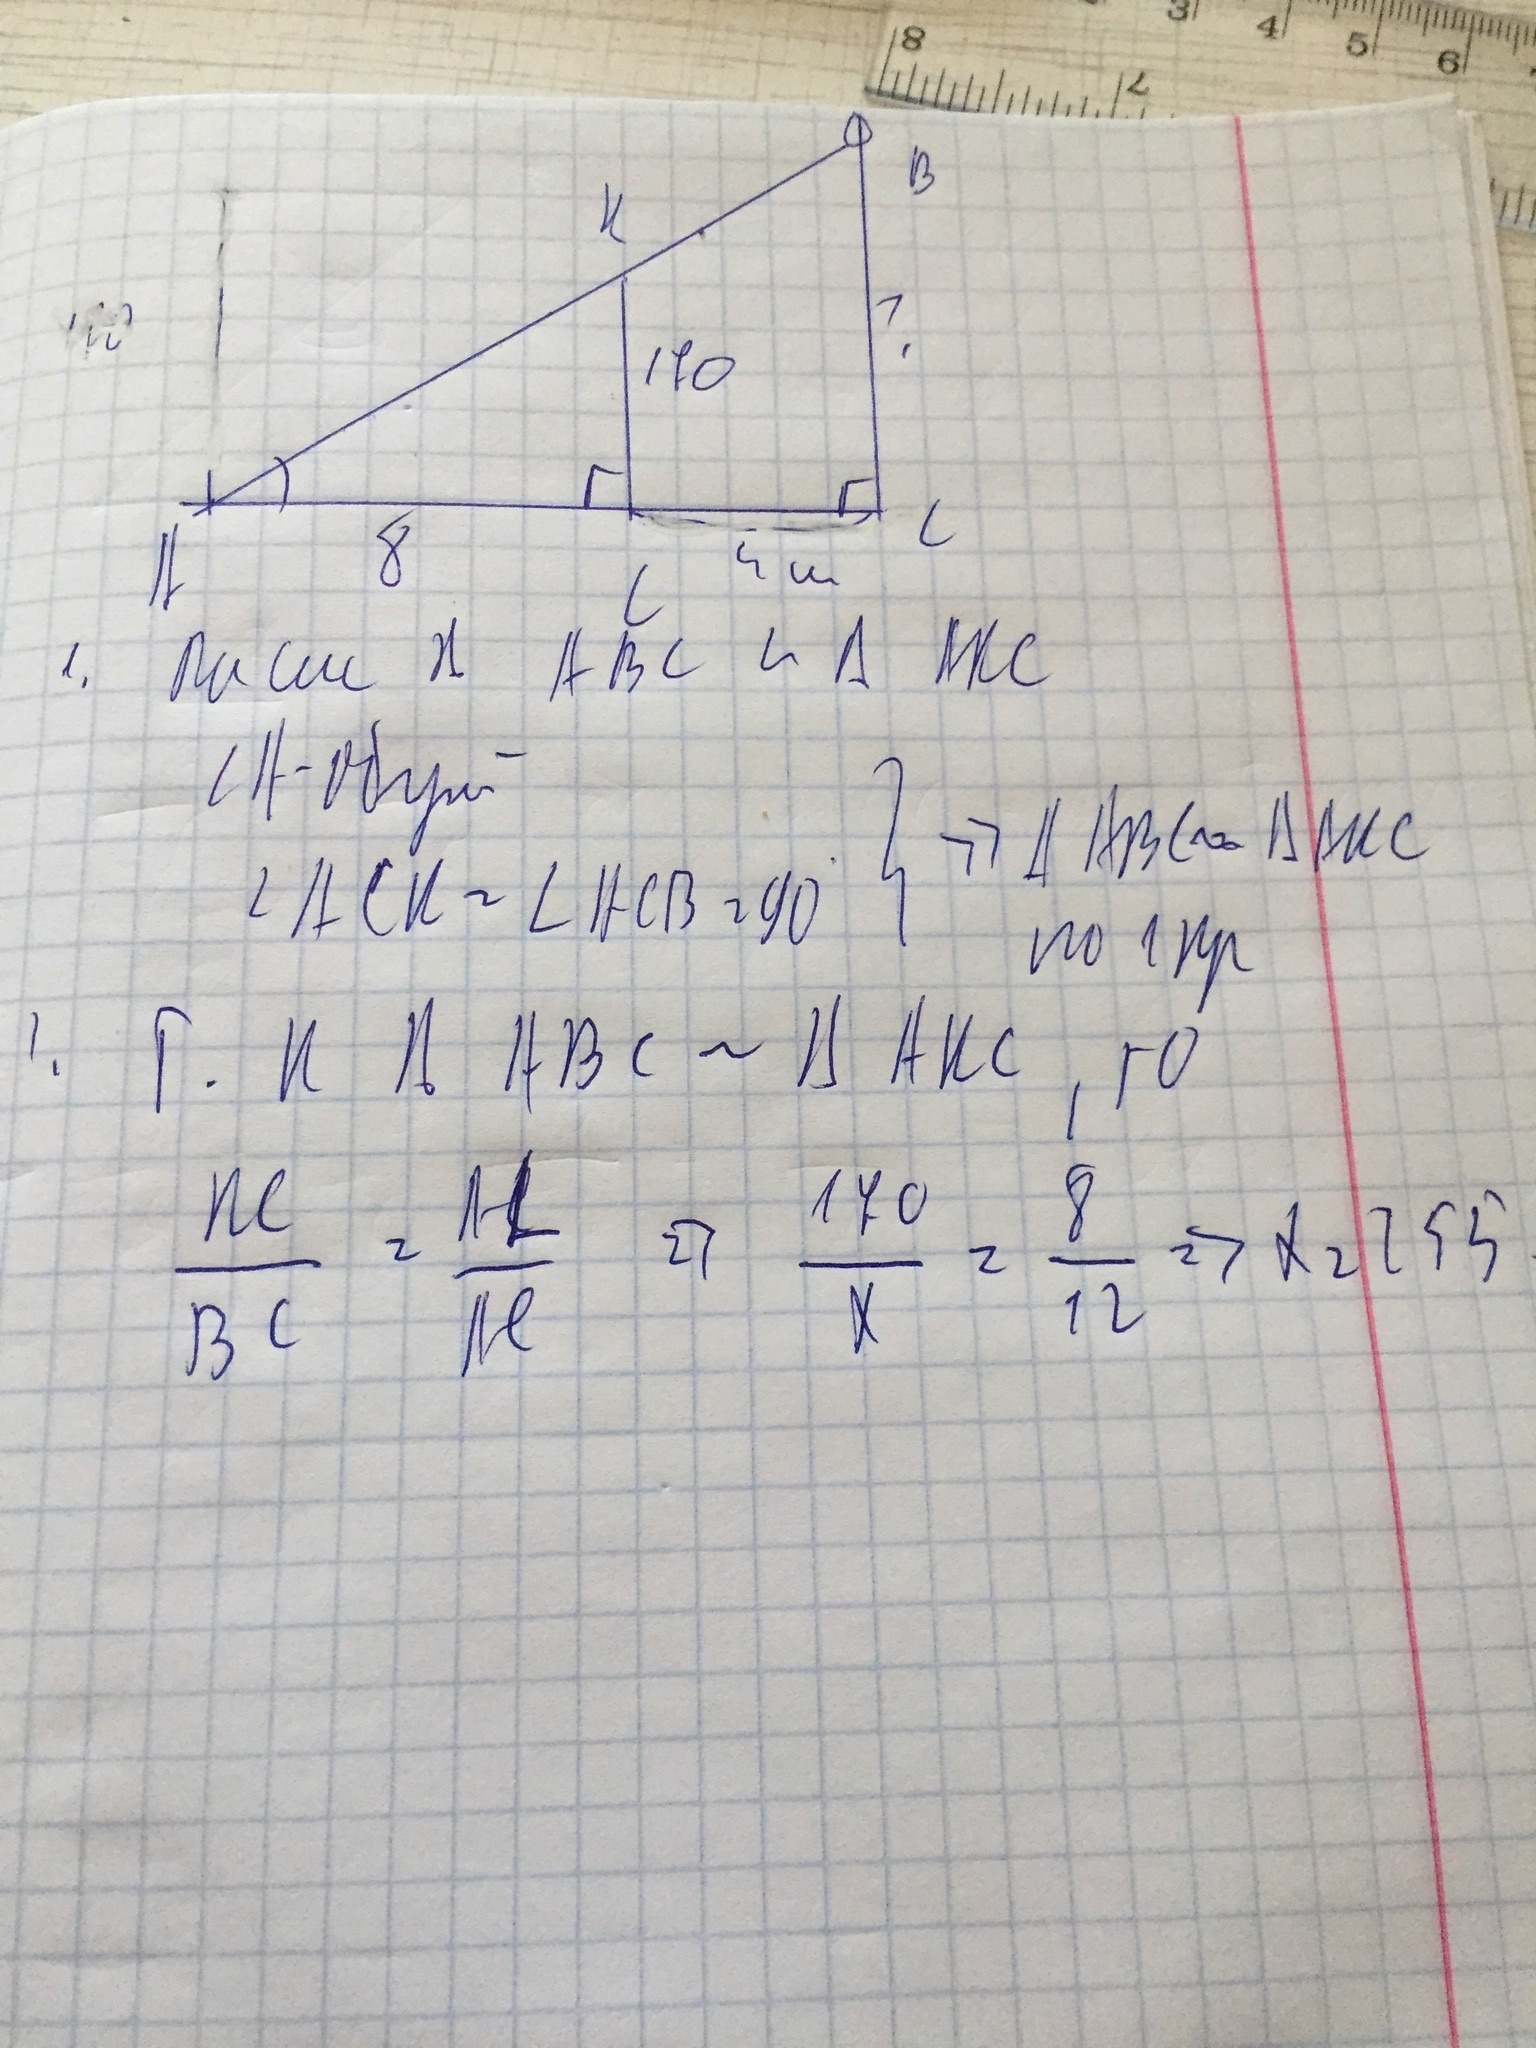 8 7 3 4 5 6
B
K
170
?
A 8 C 4 ш C
1. Рассм Δ ABC и Δ AKC
∠A - общий
∠ACK = ∠ACB = 90 } => Δ ABC ~ Δ AKC
по 1 пр
Т. К Δ ABC ~ Δ AKC, то
KC/BC = AC/AC => 170/X = 8/12 => X = 255